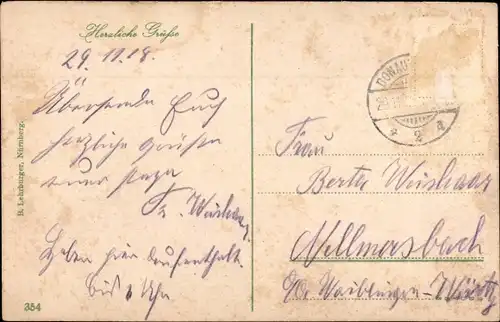 Herzliche Grüße
29.11.18.
Übersende Euch
herzliche Grüße
Fr. Weishaar
Haben hier Aufenthalt
bis 1 Uhr
B. Lehrburger, Nürnberg.
354
DONAU
2 a
Frau
Berta Weishaar
Nellmersbach
O/A. Waiblingen-Württ